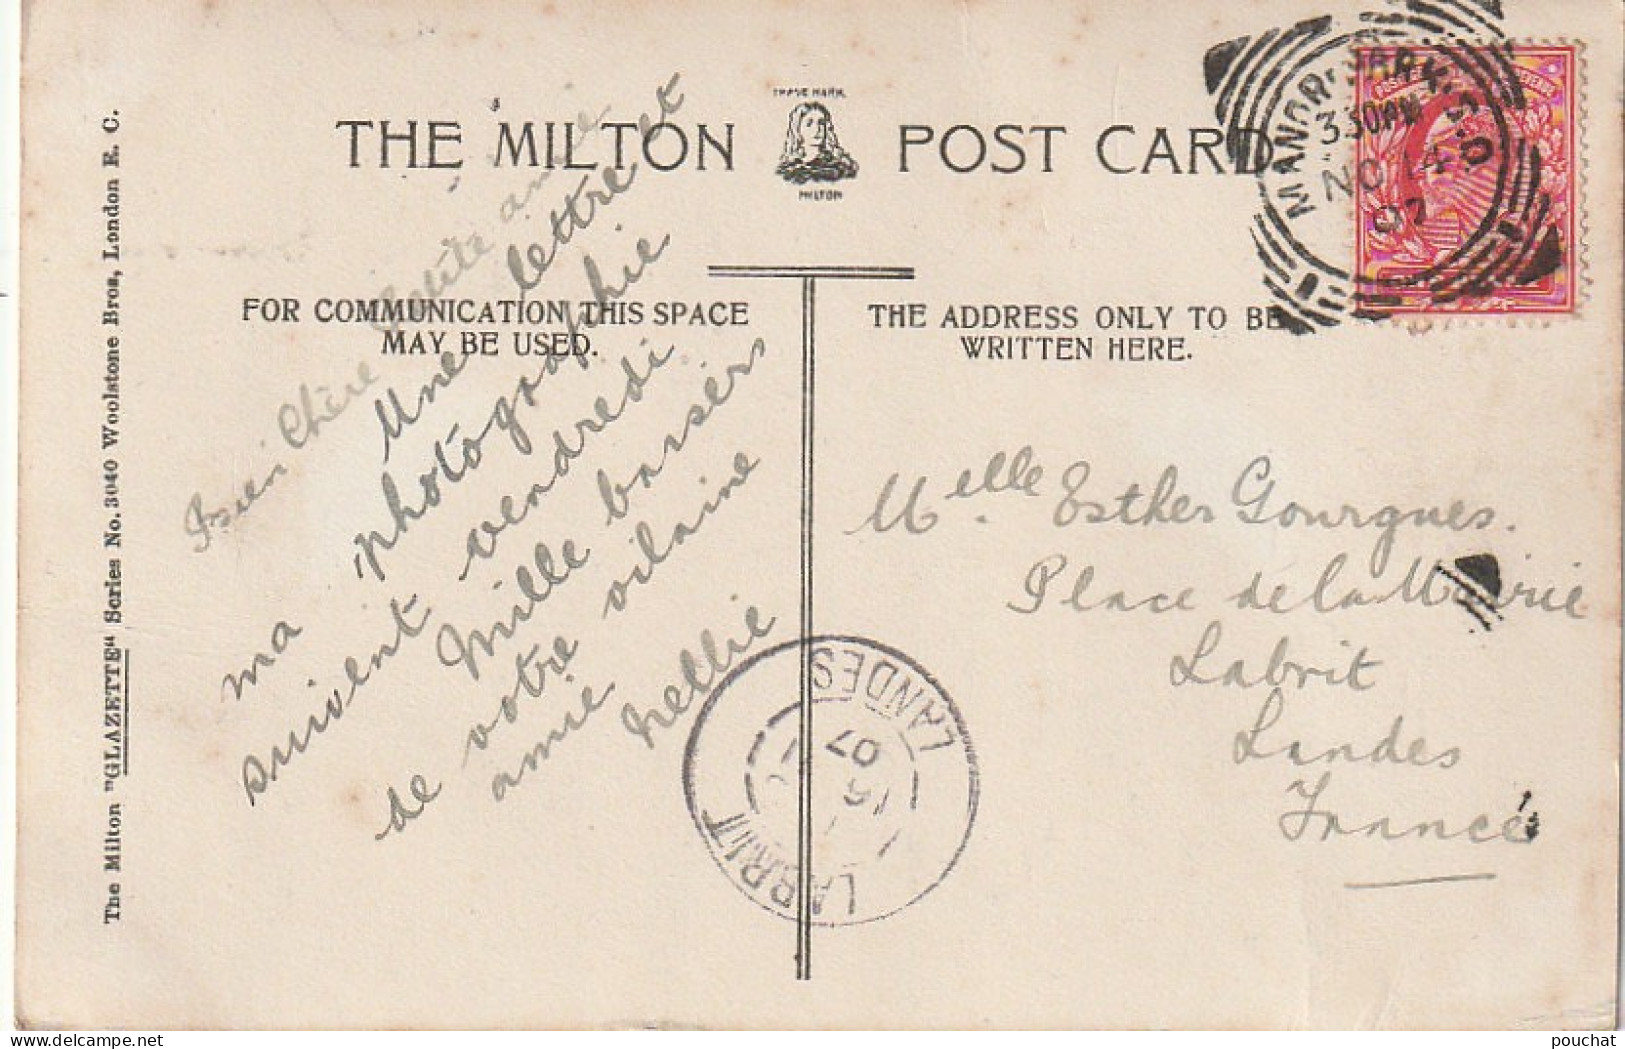 THE MILTON
TRADE MARK
MILTON
POST CARD
FOR COMMUNICATION THIS SPACE
MAY BE USED.
THE ADDRESS ONLY TO BE
WRITTEN HERE.
The Milton "GLAZETTE" Series No. 3040 Woolstone Bros, London E. C.
Bien Chère Petite amie
Une lettre et
ma photographie
suivent vendredi
Mille baisers
de votre vilaine
amie
Nellie
Melle. Esther Gourgues.
Place de la Mairie
Labrit
Landes
France
MANOR PARK S.O.
3 30PM
NO 14
07
LABRIT
LANDES
16
07
pouchat